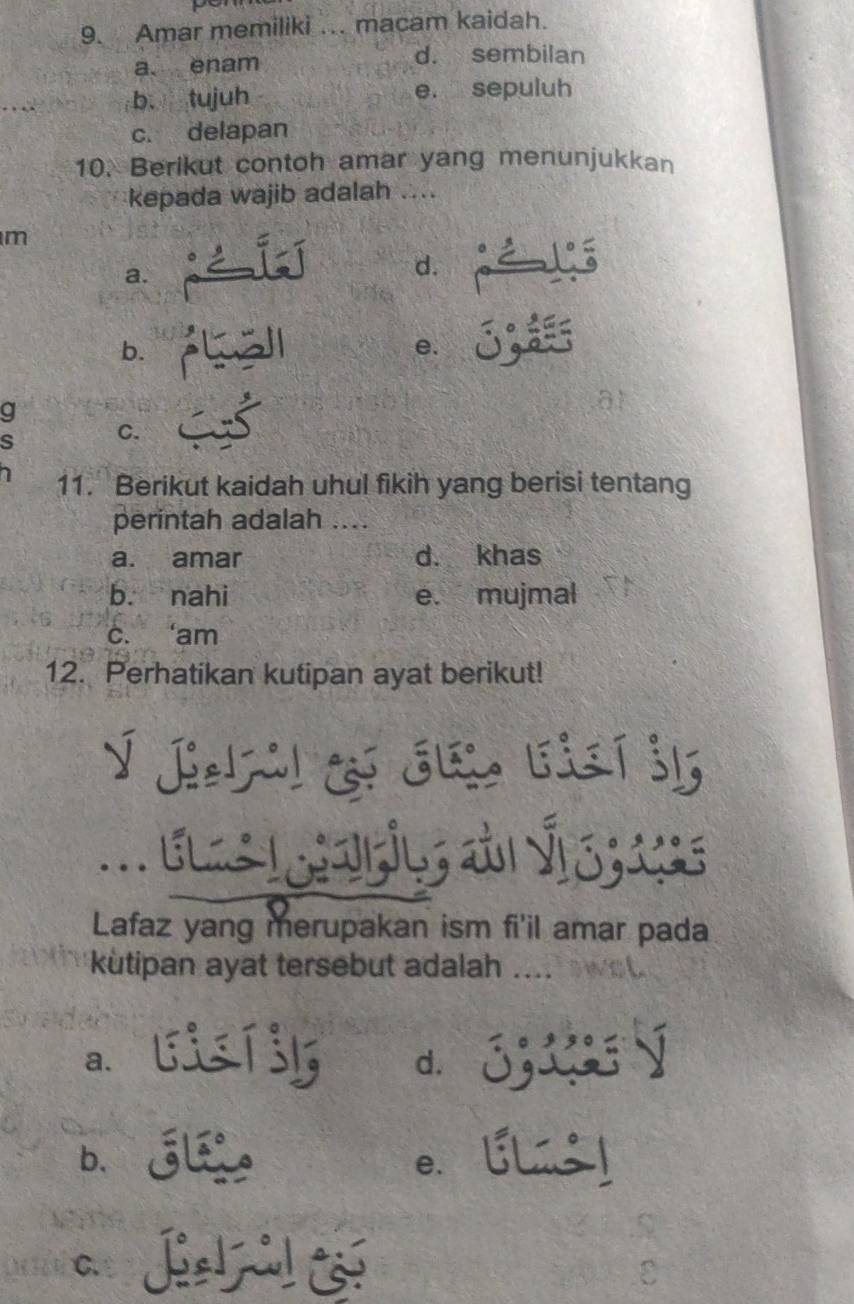 9. Amar memiliki ... macam kaidah.
a. enam d. sembilan
b. tujuh e. sepuluh
c. delapan
10. Berikut contoh amar yang menunjukkan
kepada wajib adalah ....
a. لَعَلَّكُمْ d. قَبْلِكُمْ
b. الصِّيَامُ e. تَتَّقُوْنَ
c. كُتِبَ
11. Berikut kaidah uhul fikih yang berisi tentang
perintah adalah ....
a. amar d. khas
b. nahi e. mujmal
c. ‘am
12. Perhatikan kutipan ayat berikut!
وَاِذْ اَخَذْنَا مِيْثَاقَ بَنِيْٓ اِسْرَاۤءِيْلَ لَا
تَعْبُدُوْنَ اِلَّا اللّٰهَ وَبِالْوَالِدَيْنِ اِحْسَانًا ...
Lafaz yang merupakan ism fi'il amar pada
kutipan ayat tersebut adalah ....
a. وَاِذْ اَخَذْنَا d. لَا تَعْبُدُوْنَ
b. مِيْثَاقَ e. اِحْسَانًا
c. بَنِيْٓ اِسْرَاۤءِيْلَ